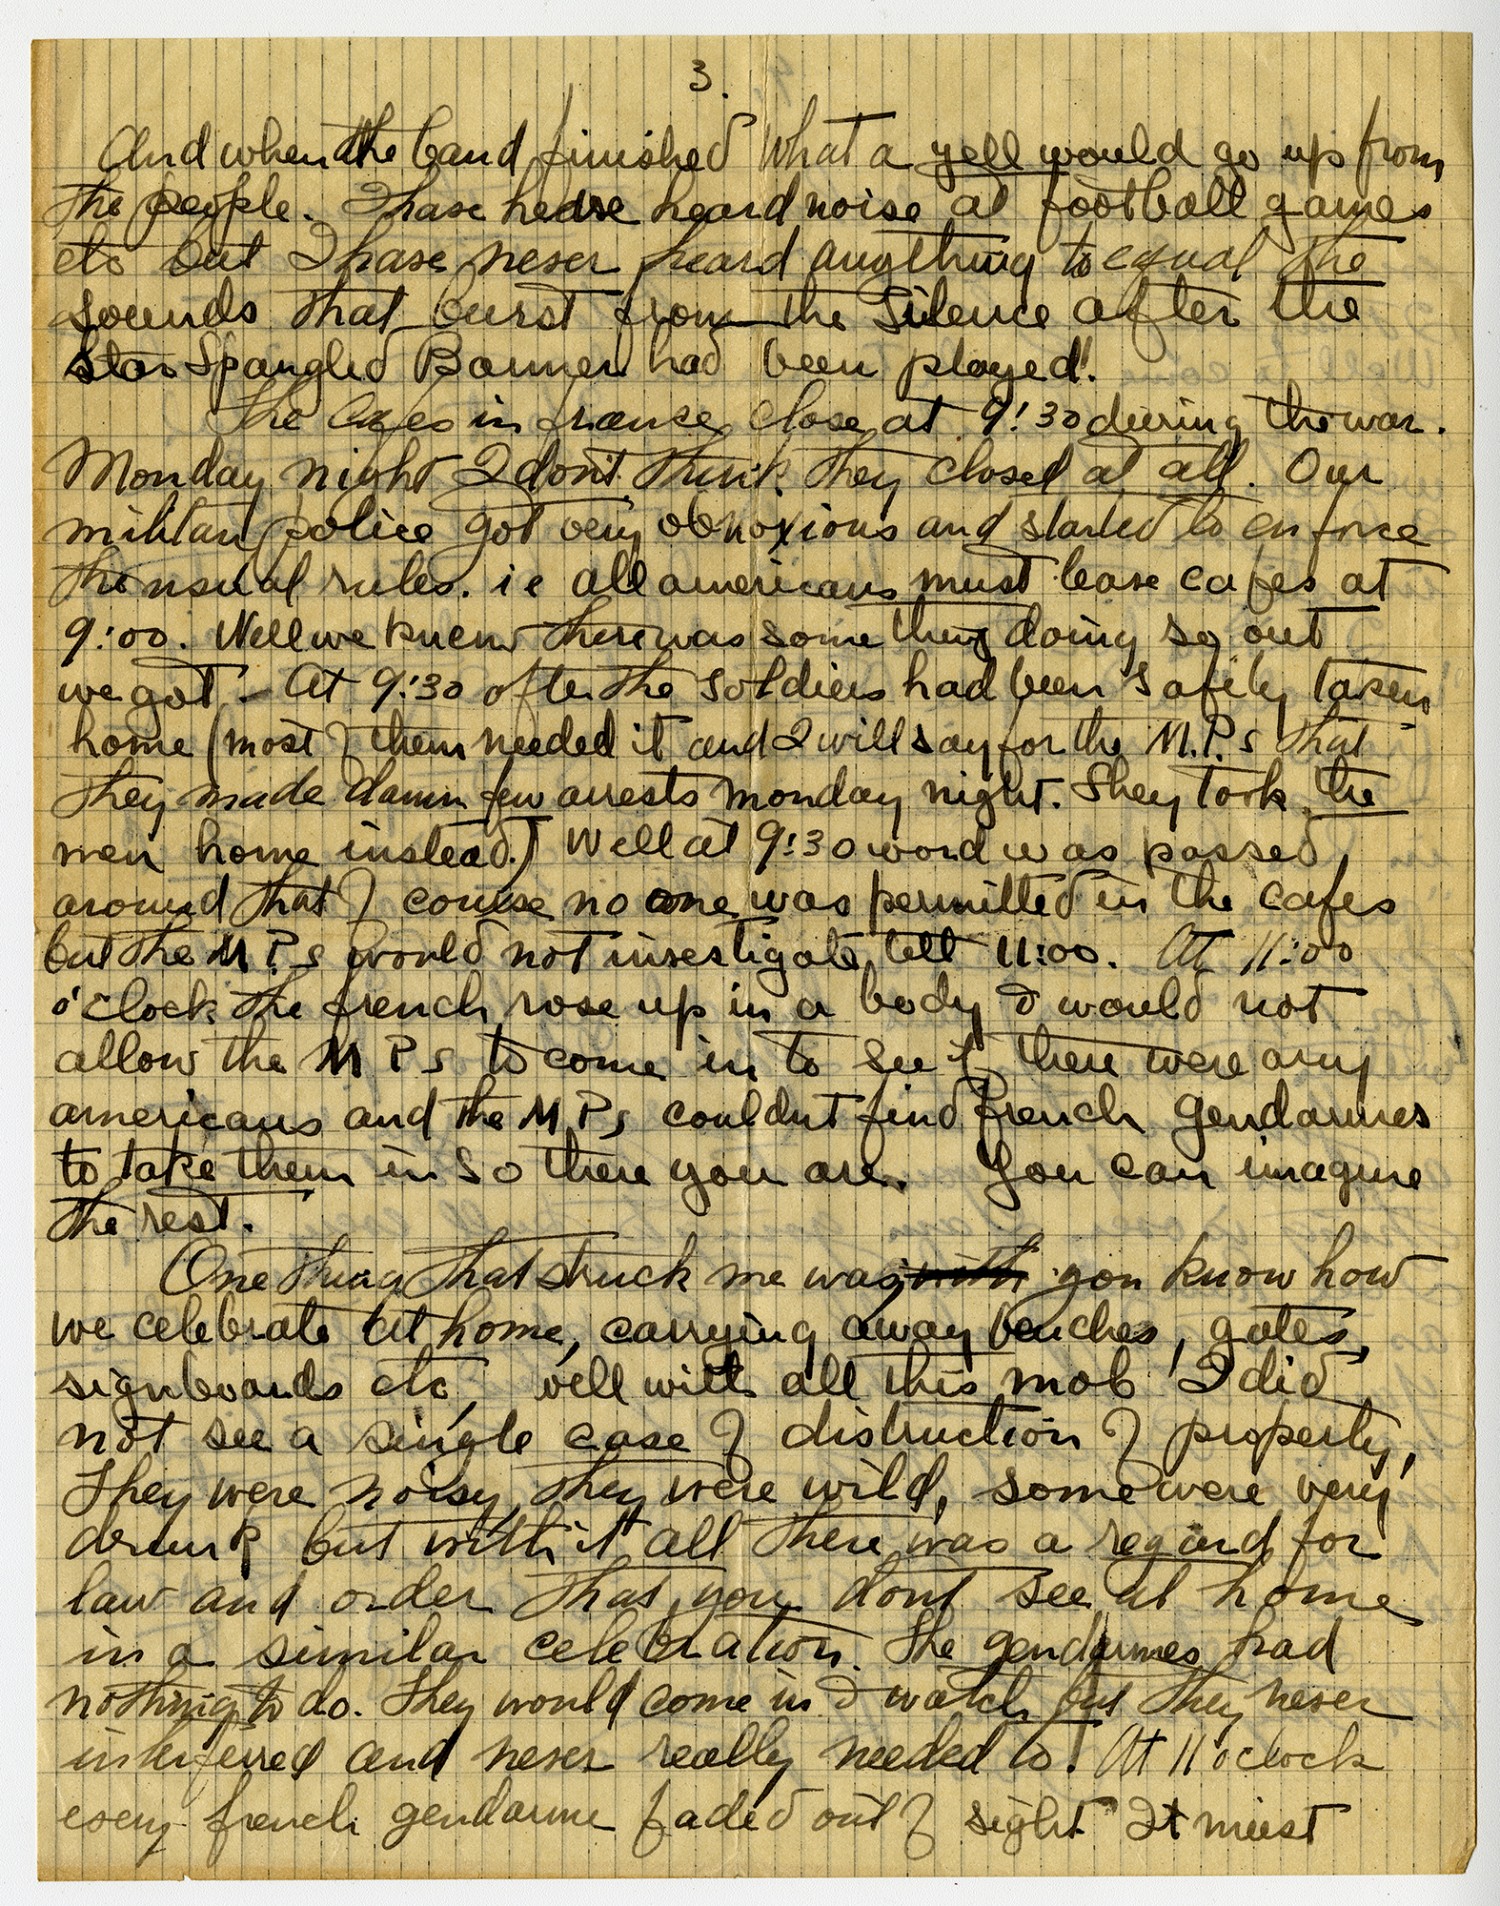 3.
And when the band finished what a yell would go up from
the people. I have heard noise at football games
etc but I have never heard anything to equal the
sounds that burst from the silence after the
Star Spangled Banner had been played!
The Cafes in france close at 9:30 during the war.
Monday night I don't think they closed at all. Our
military police got very obnoxious and started to enforce
the usual rules. i e all americans must leave cafes at
9:00. Well we knew there was something doing so out
we got - At 9:30 after the soldiers had been safely taken
home (most of them needed it and I will say for the M.P.s that
they made damn few arrests monday night. They took the
men home instead.) Well at 9:30 word was passed
around that of course no one was permitted in the cafes
but the M P.s would not investigate till 11:00. At 11:00
o'clock the french rose up in a body & would not
allow the M P s to come in to see if there were any
americans and the M P s couldnt find french gendarmes
to take them in so there you are. You can imagine
the rest.
One thing that struck me was with you know how
we celebrate at home, carrying away benches, gates,
signboards etc, well with all this mob I did
not see a single case of distruction of property,
They were noisy, they were wild, some were very
drunk but with it all there was a regard for
law and order that you dont see at home
in a similar celebration. The gendarmes had
nothing to do. They would come in & watch but they never
interferred and never really needed to! At 11 oclock
every french gendarme faded out of sight It must